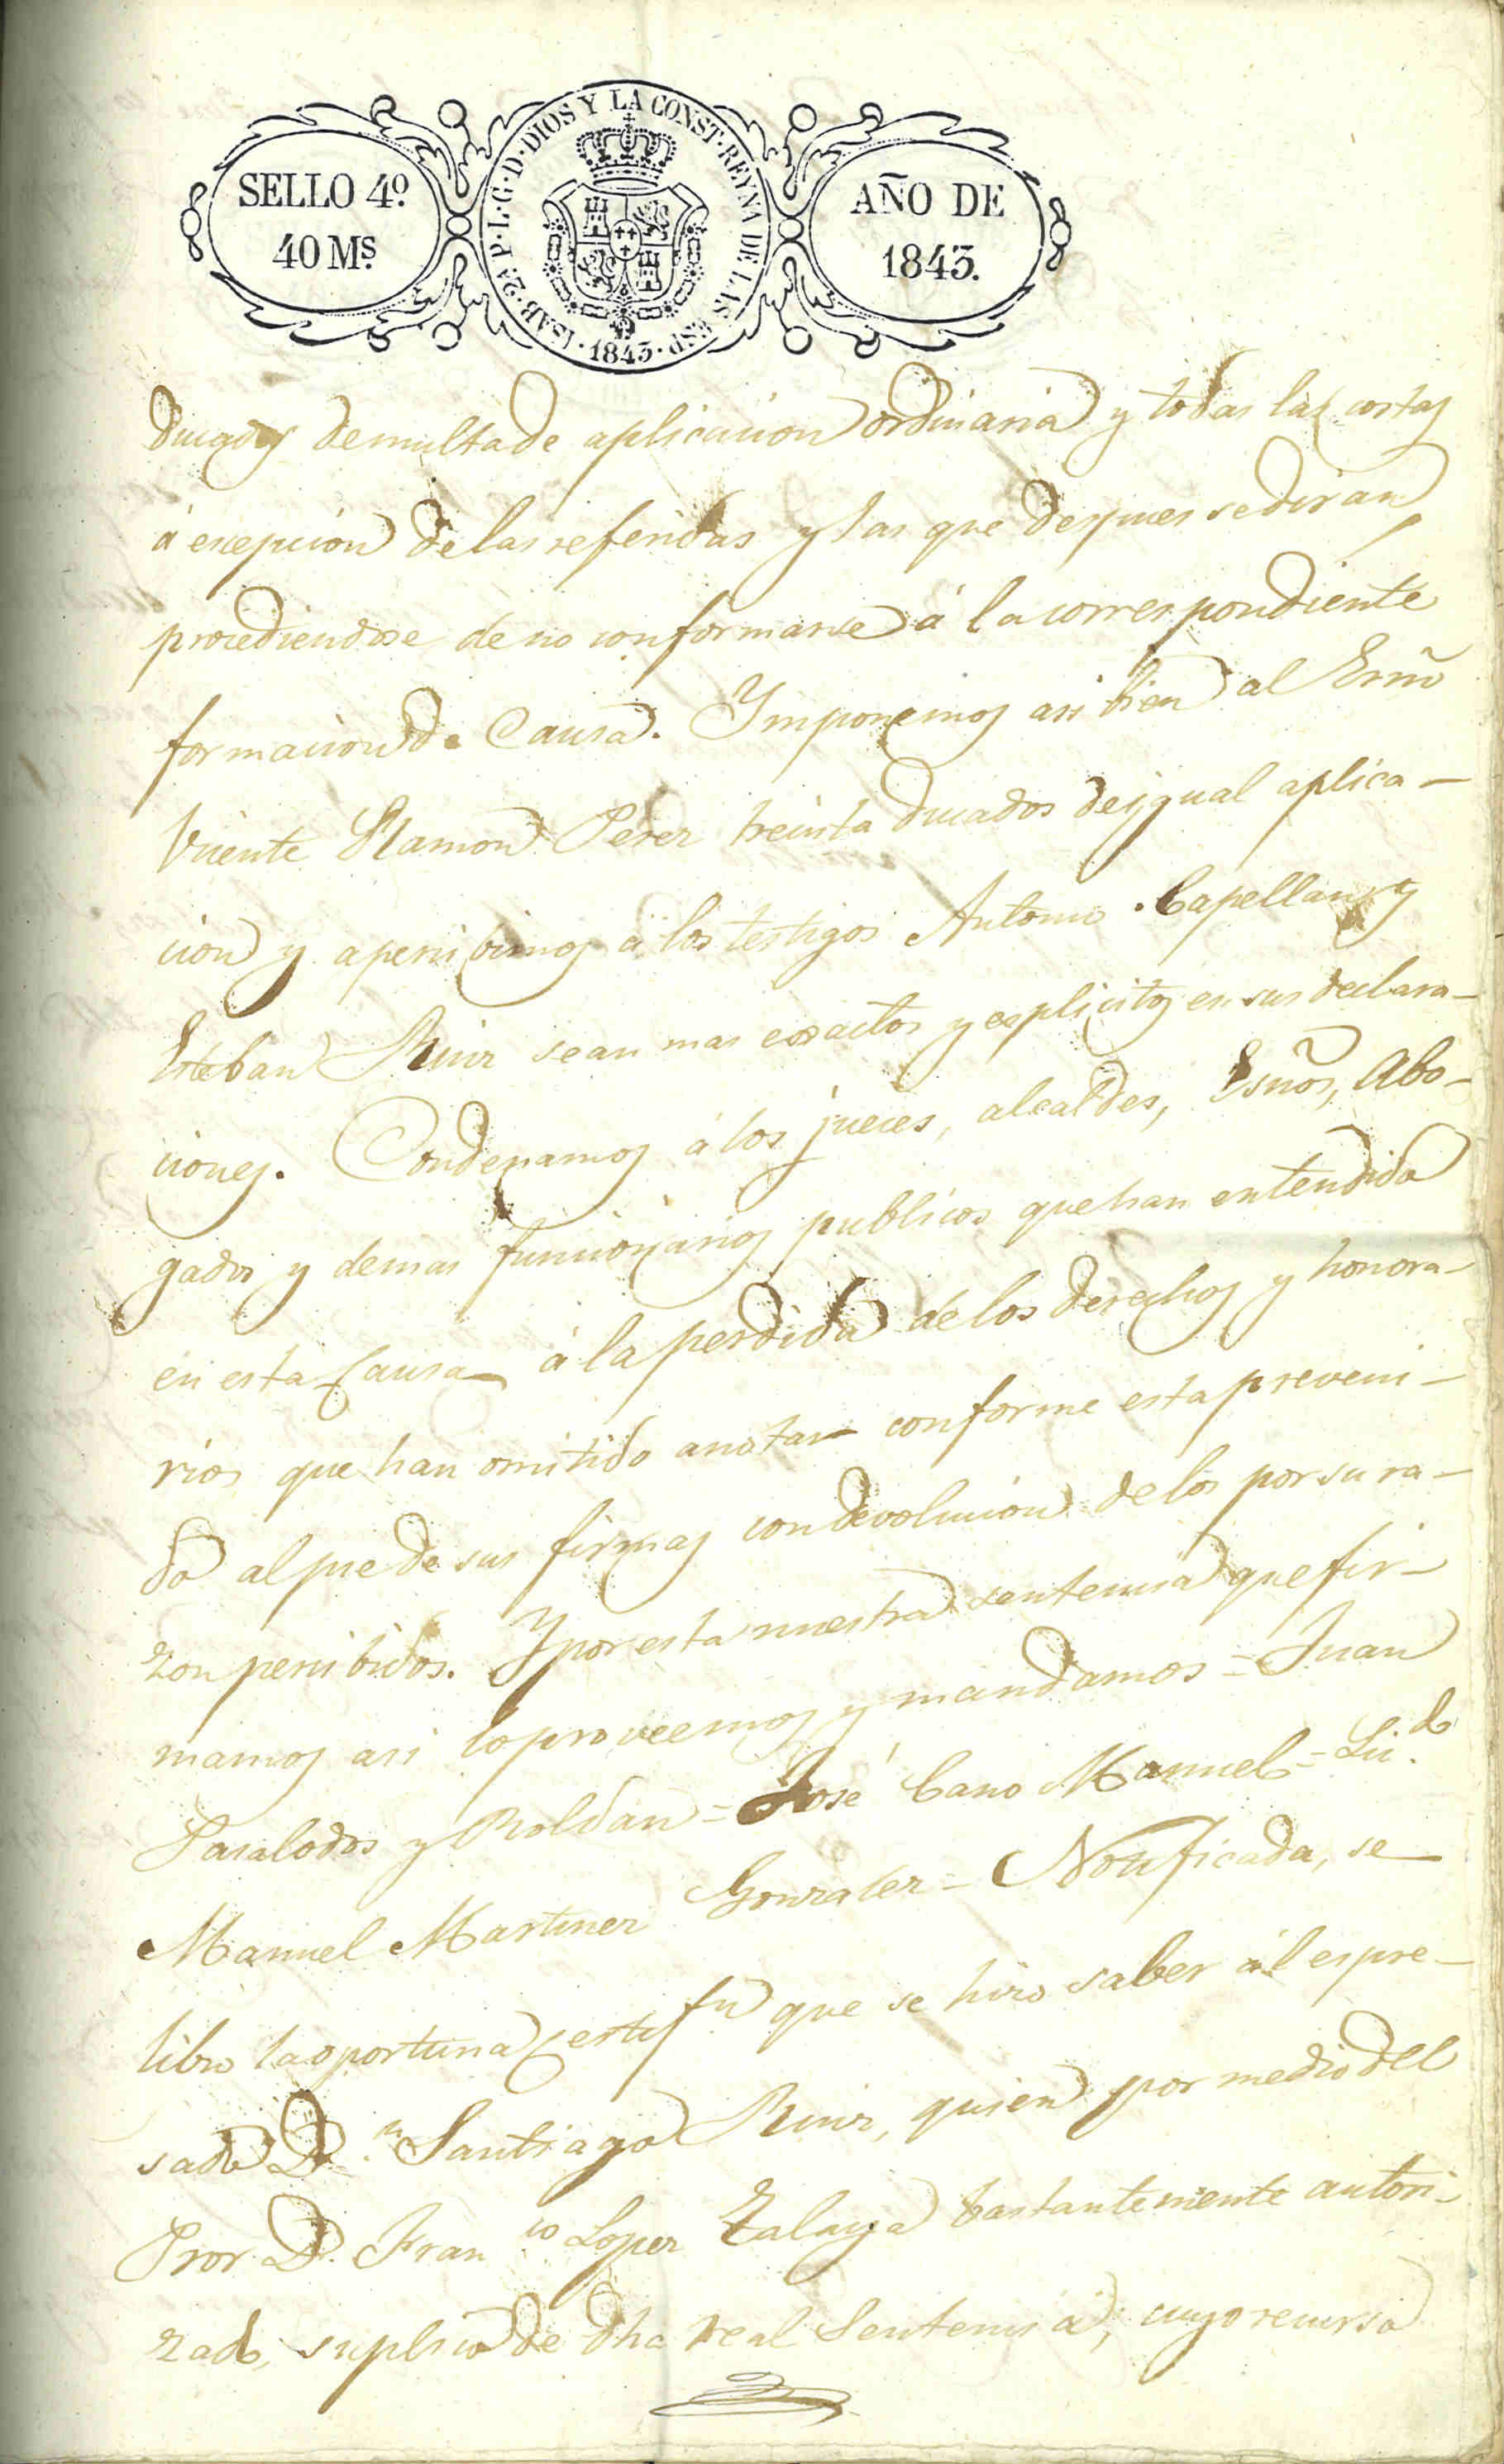 SELLO 4º
40 Mˢ.
ISAB. 2ª P. L. G. D. DIOS Y LA CONST. REYNA DE LAS ESP.
· 1843 ·
AÑO DE
1843.
ducados de multa de aplicacion ordinaria y todas las costas
á escepcion de las referidas y las que despues se diran
procediendose de no conformarse á la correspondiente
formacion de Causa. Ymponemos asi bien al Esnõ
Vicente Ramon Perez treinta ducados de ygual aplica-
cion y apercibimos á los testigos Antonio Capellan y
Esteban Ruiz sean mas exsactos y esplicitos en sus declara-
ciones. Condenamos á los jueces, alcaldes, Esnõs, Abo-
gados y demas funcionarios publicos que han entendido
en esta Causa á la perdida de los derechos y honora-
rios que han omitido anotar conforme esta preveni-
do al pie de sus firmas con devolucion de los por su ra-
zon percibidos. Y por esta nuestra sentencia que fir-
mamos asi lo proveemos y mandamos = Juan
Pasalodos y Roldan = José Cano Manuel = Lic.do
Manuel Martinez Gonzalez = Notificada, se
libró la oportuna Certifn que se hizo saber ál espre-
sado D.n Santiago Ruiz, quien por medio del
Pror. D. Franco Lopez Zalaya bastantemente autori-
zado, suplicó de dha real Sentencia, cuyo recurso